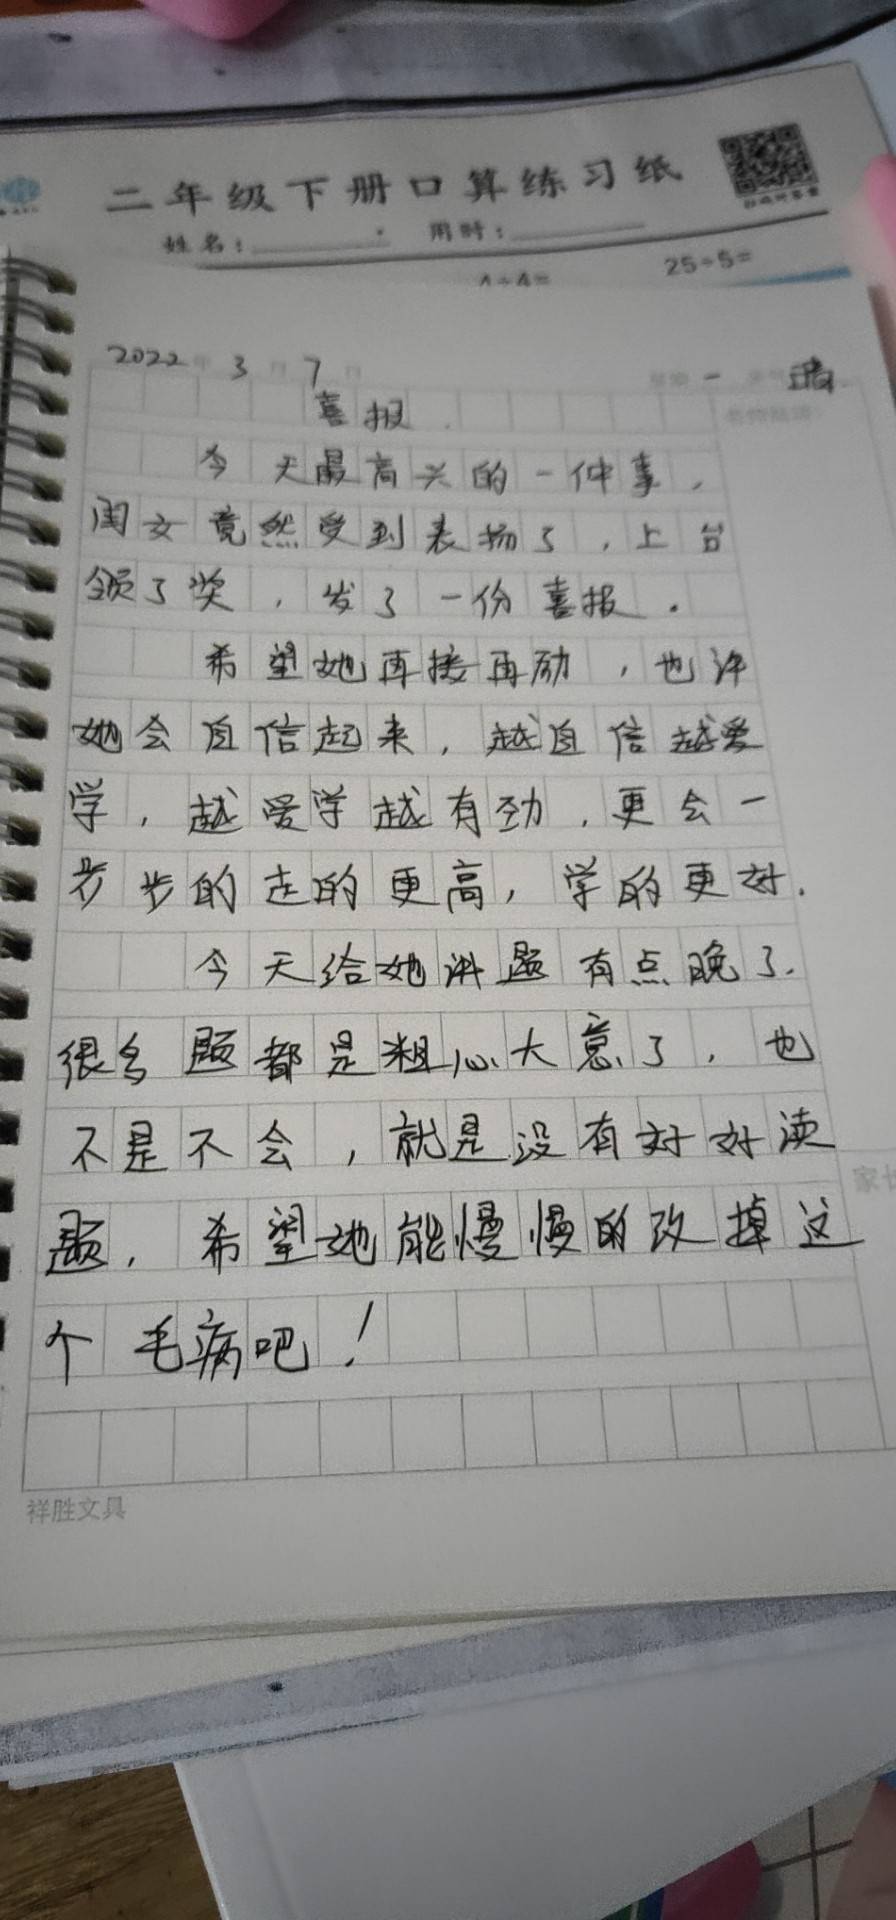 二年级下册口算练习纸
姓名：
用时：
4÷4=
25÷5=
2022年 3月 7日
星期 一
晴
喜报
今天最高兴的一件事，
闺女竟然受到表扬了，上台
领了奖，发了一份喜报。
希望她再接再励，也许
她会自信起来，越自信越爱
学，越爱学越有劲，更会一
步步的走的更高，学的更好.
今天给她讲题有点晚了.
很多题都是粗心大意了，也
不是不会，就是没有好好读
题，希望她能慢慢的改掉这
个毛病吧！
家长
祥胜文具